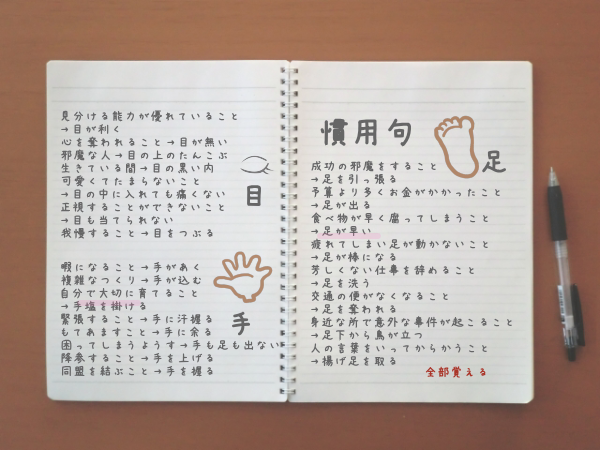 見分ける能力が優れていること
→目が利く
心を奪われること→目が無い
邪魔な人→目の上のたんこぶ
生きている間→目の黒い内
可愛くてたまらないこと
→目の中に入れても痛くない
正視することができないこと
→目も当てられない
我慢すること→目をつぶる
目
暇になること→手があく
複雑なつくり→手が込む
自分で大切に育てること
→手塩を掛ける
緊張すること→手に汗握る
もてあますこと→手に余る
困ってしまうようす→手も足も出ない
降参すること→手を上げる
同盟を結ぶこと→手を握る
手
慣用句
足
成功の邪魔をすること
→足を引っ張る
予算より多くお金がかかったこと
→足が出る
食べ物が早く腐ってしまうこと
→足が早い
疲れてしまい足が動かないこと
→足が棒になる
芳しくない仕事を辞めること
→足を洗う
交通の便がなくなること
→足を奪われる
身近な所で意外な事件が起こること
→足下から鳥が立つ
人の言葉をいってからかうこと
→揚げ足を取る
全部覚える